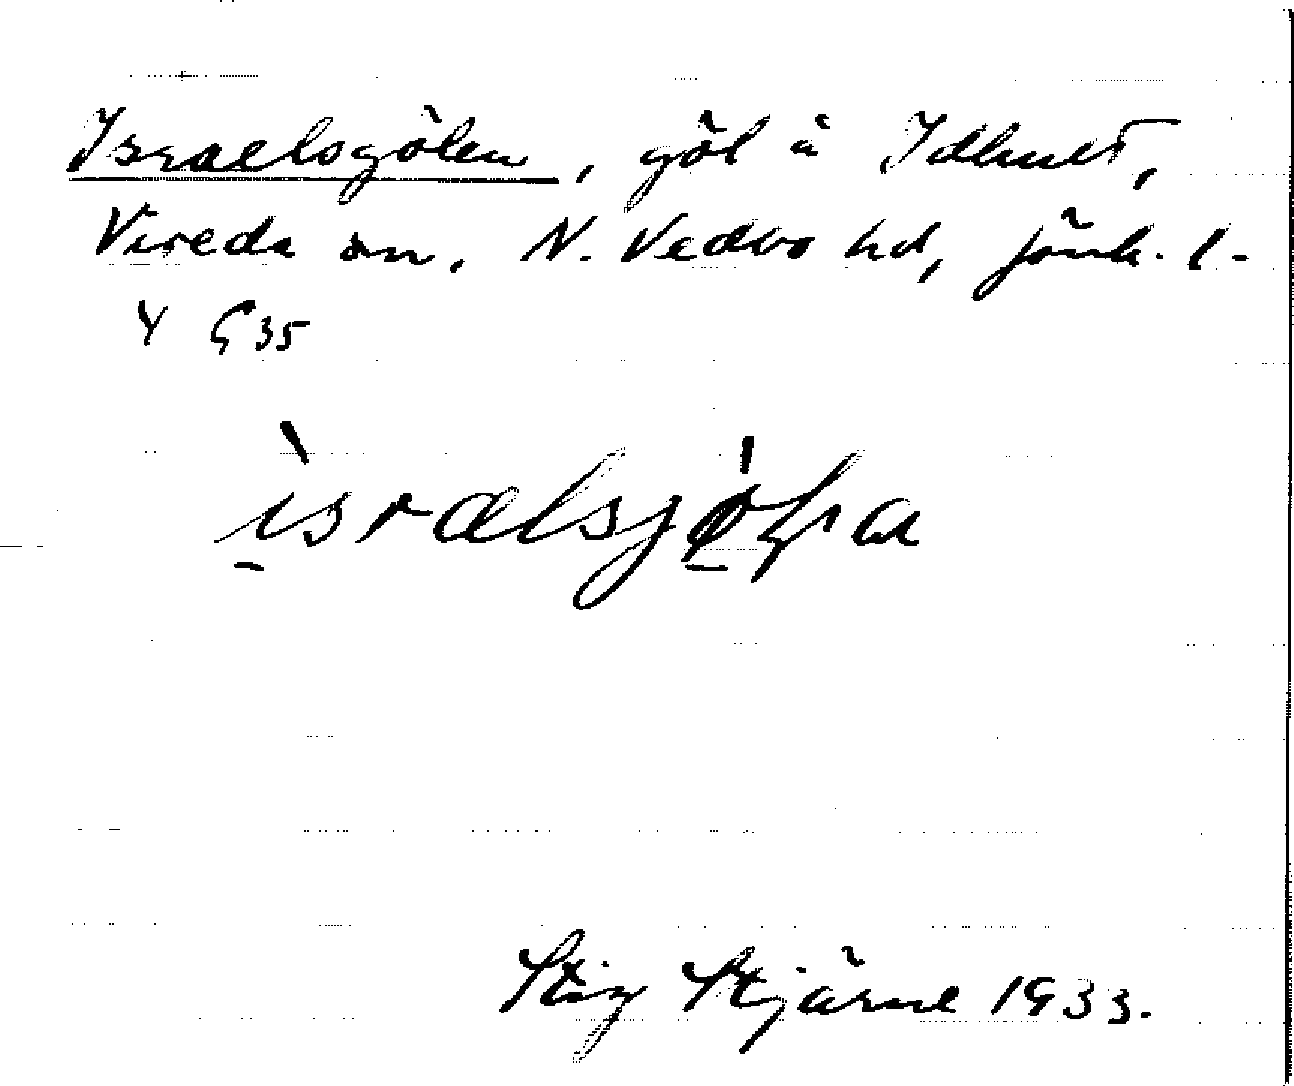 Israelsgölen, göl å Idhult,
Vireda sn. N. Vedbo hd, Jönk. l.
Y G 35
ìsrælsjø̍ɫa
Stig Stjärne 1933.